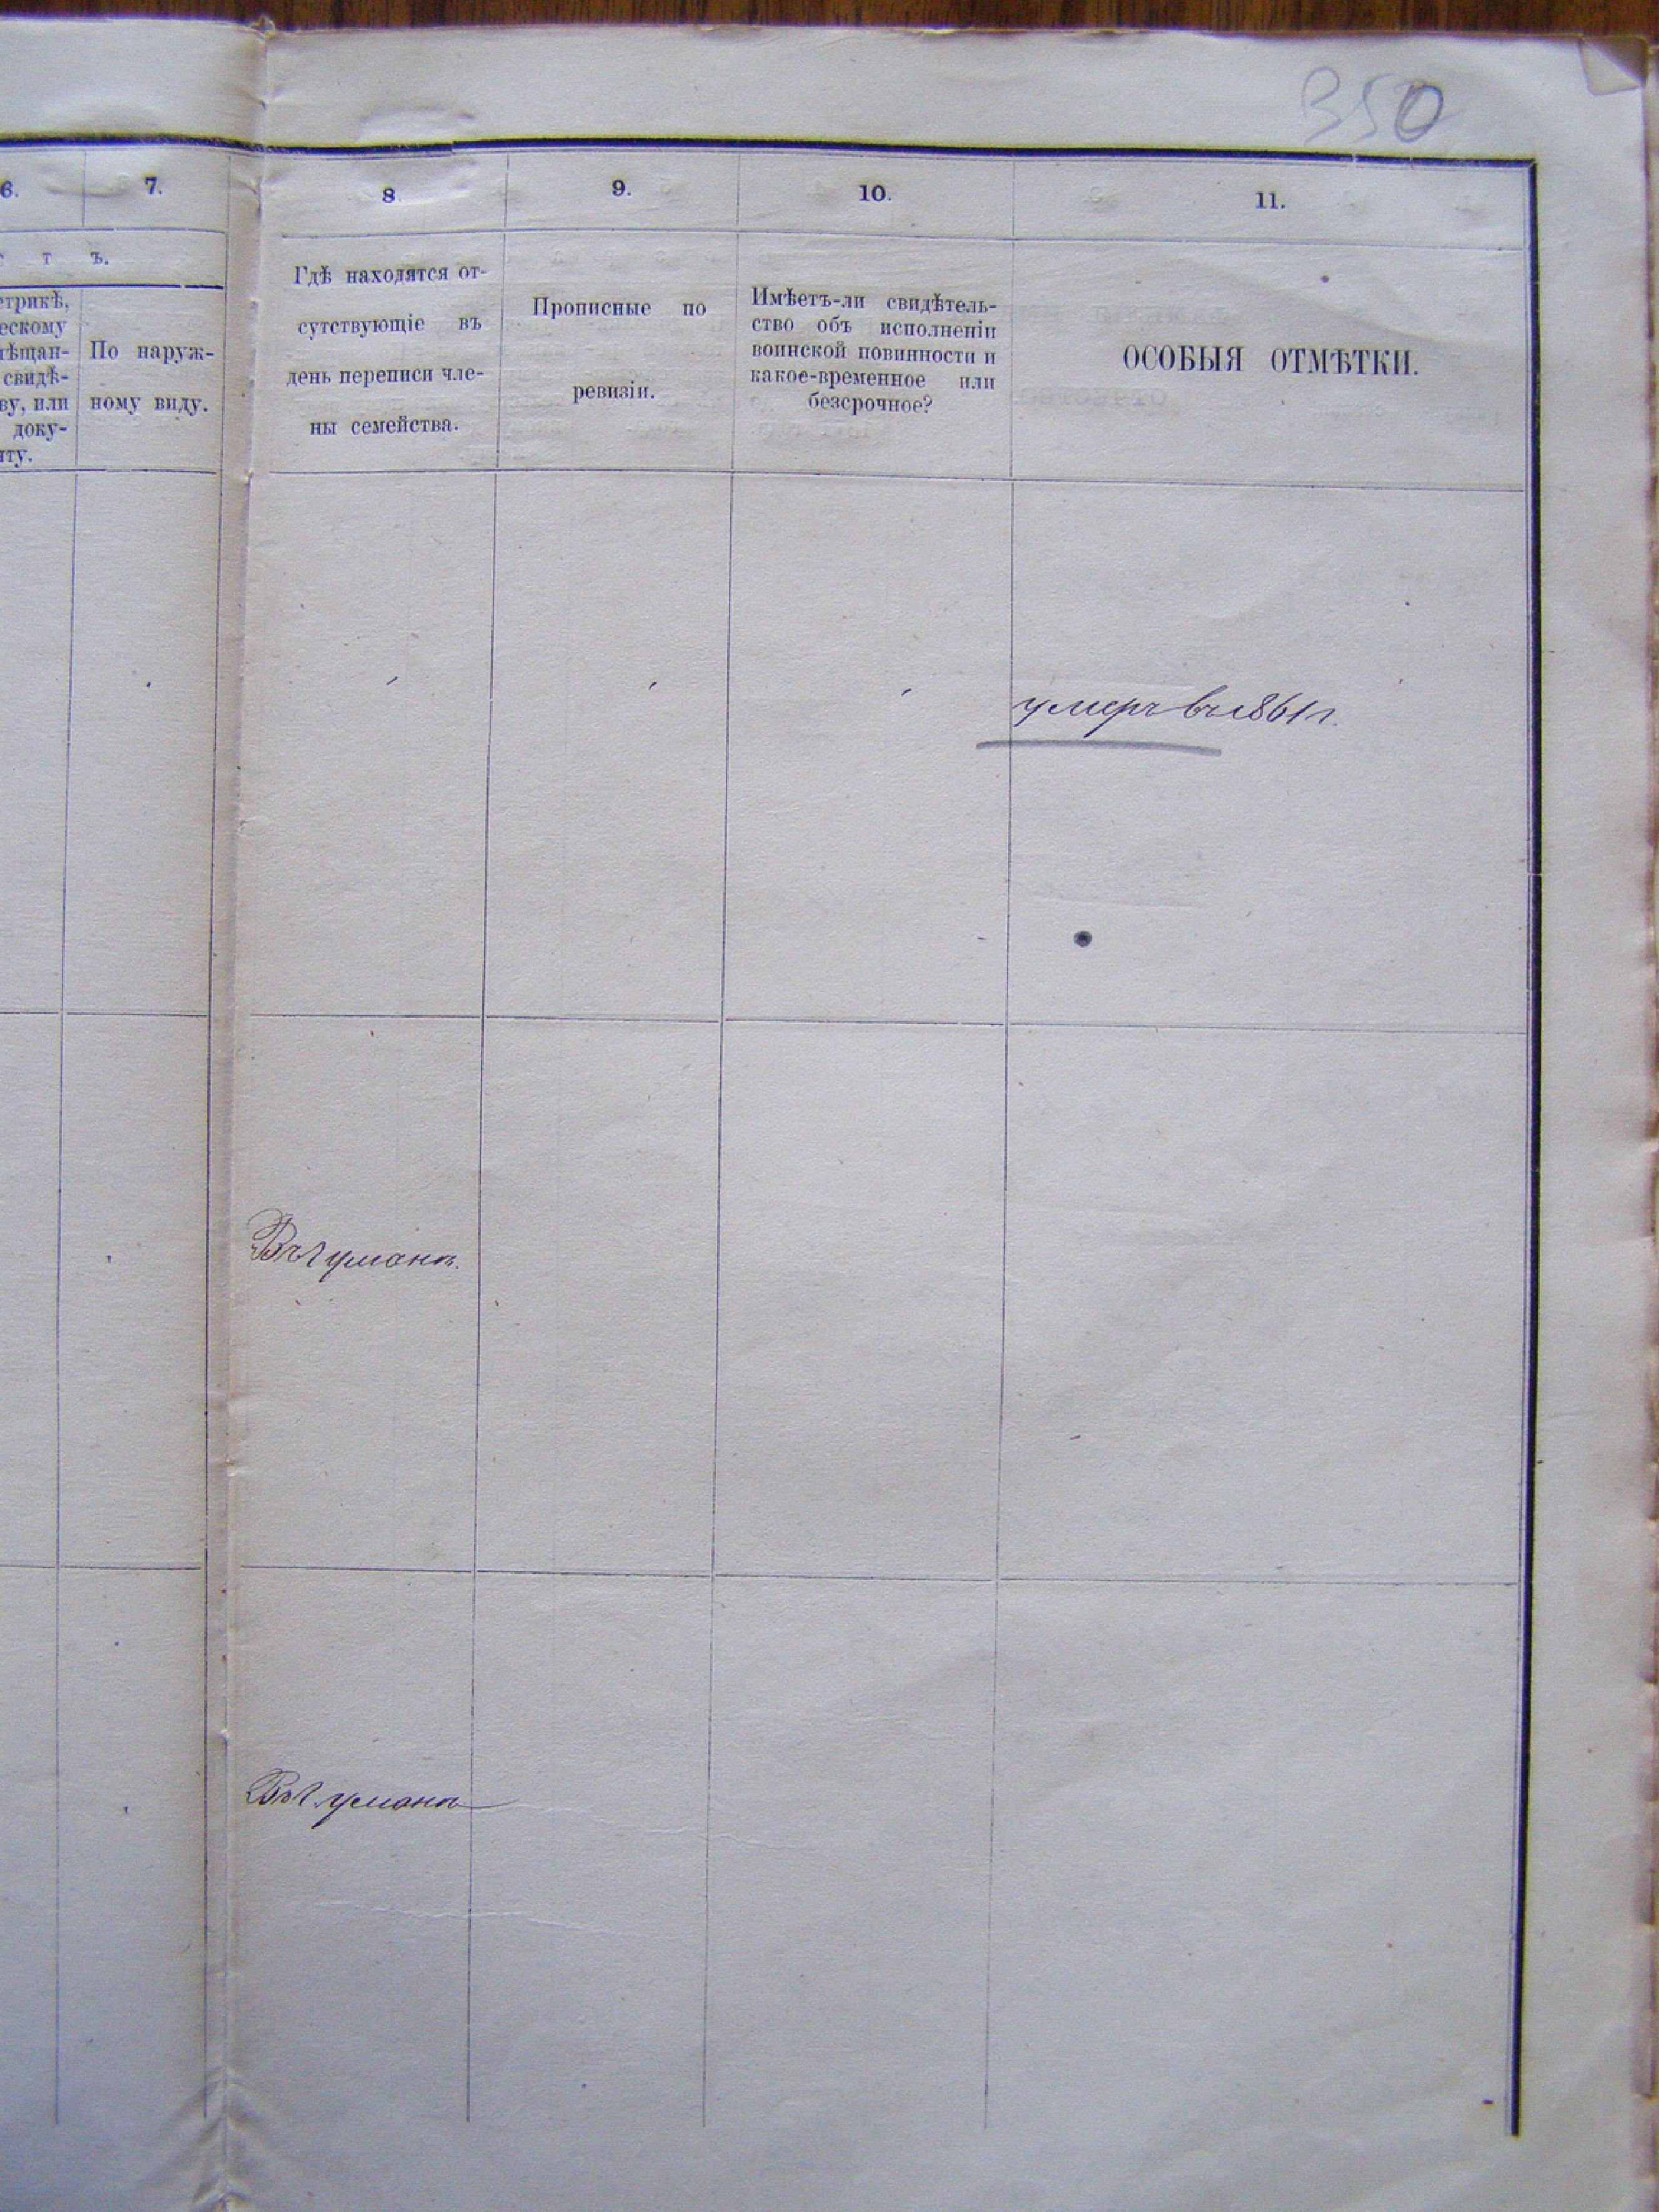 350
6.
7.
8
9.
10.
11.
с т ъ.
етрикѣ,
ескому
мѣщан-
свидѣ-
ву, или
доку-
нту.
По наруж-
ному виду.
Гдѣ находятся от-
сутствующіе въ
день переписи чле-
ны семейства.
Прописные по
ревизіи.
Имѣетъ-ли свидѣтель-
ство объ исполненіи
воинской повинности и
какое-временное или
безсрочное?
ОСОБЫЯ ОТМѢТКИ.
умеръ въ 1861 г.
Въ г умани.
Въ г. умани